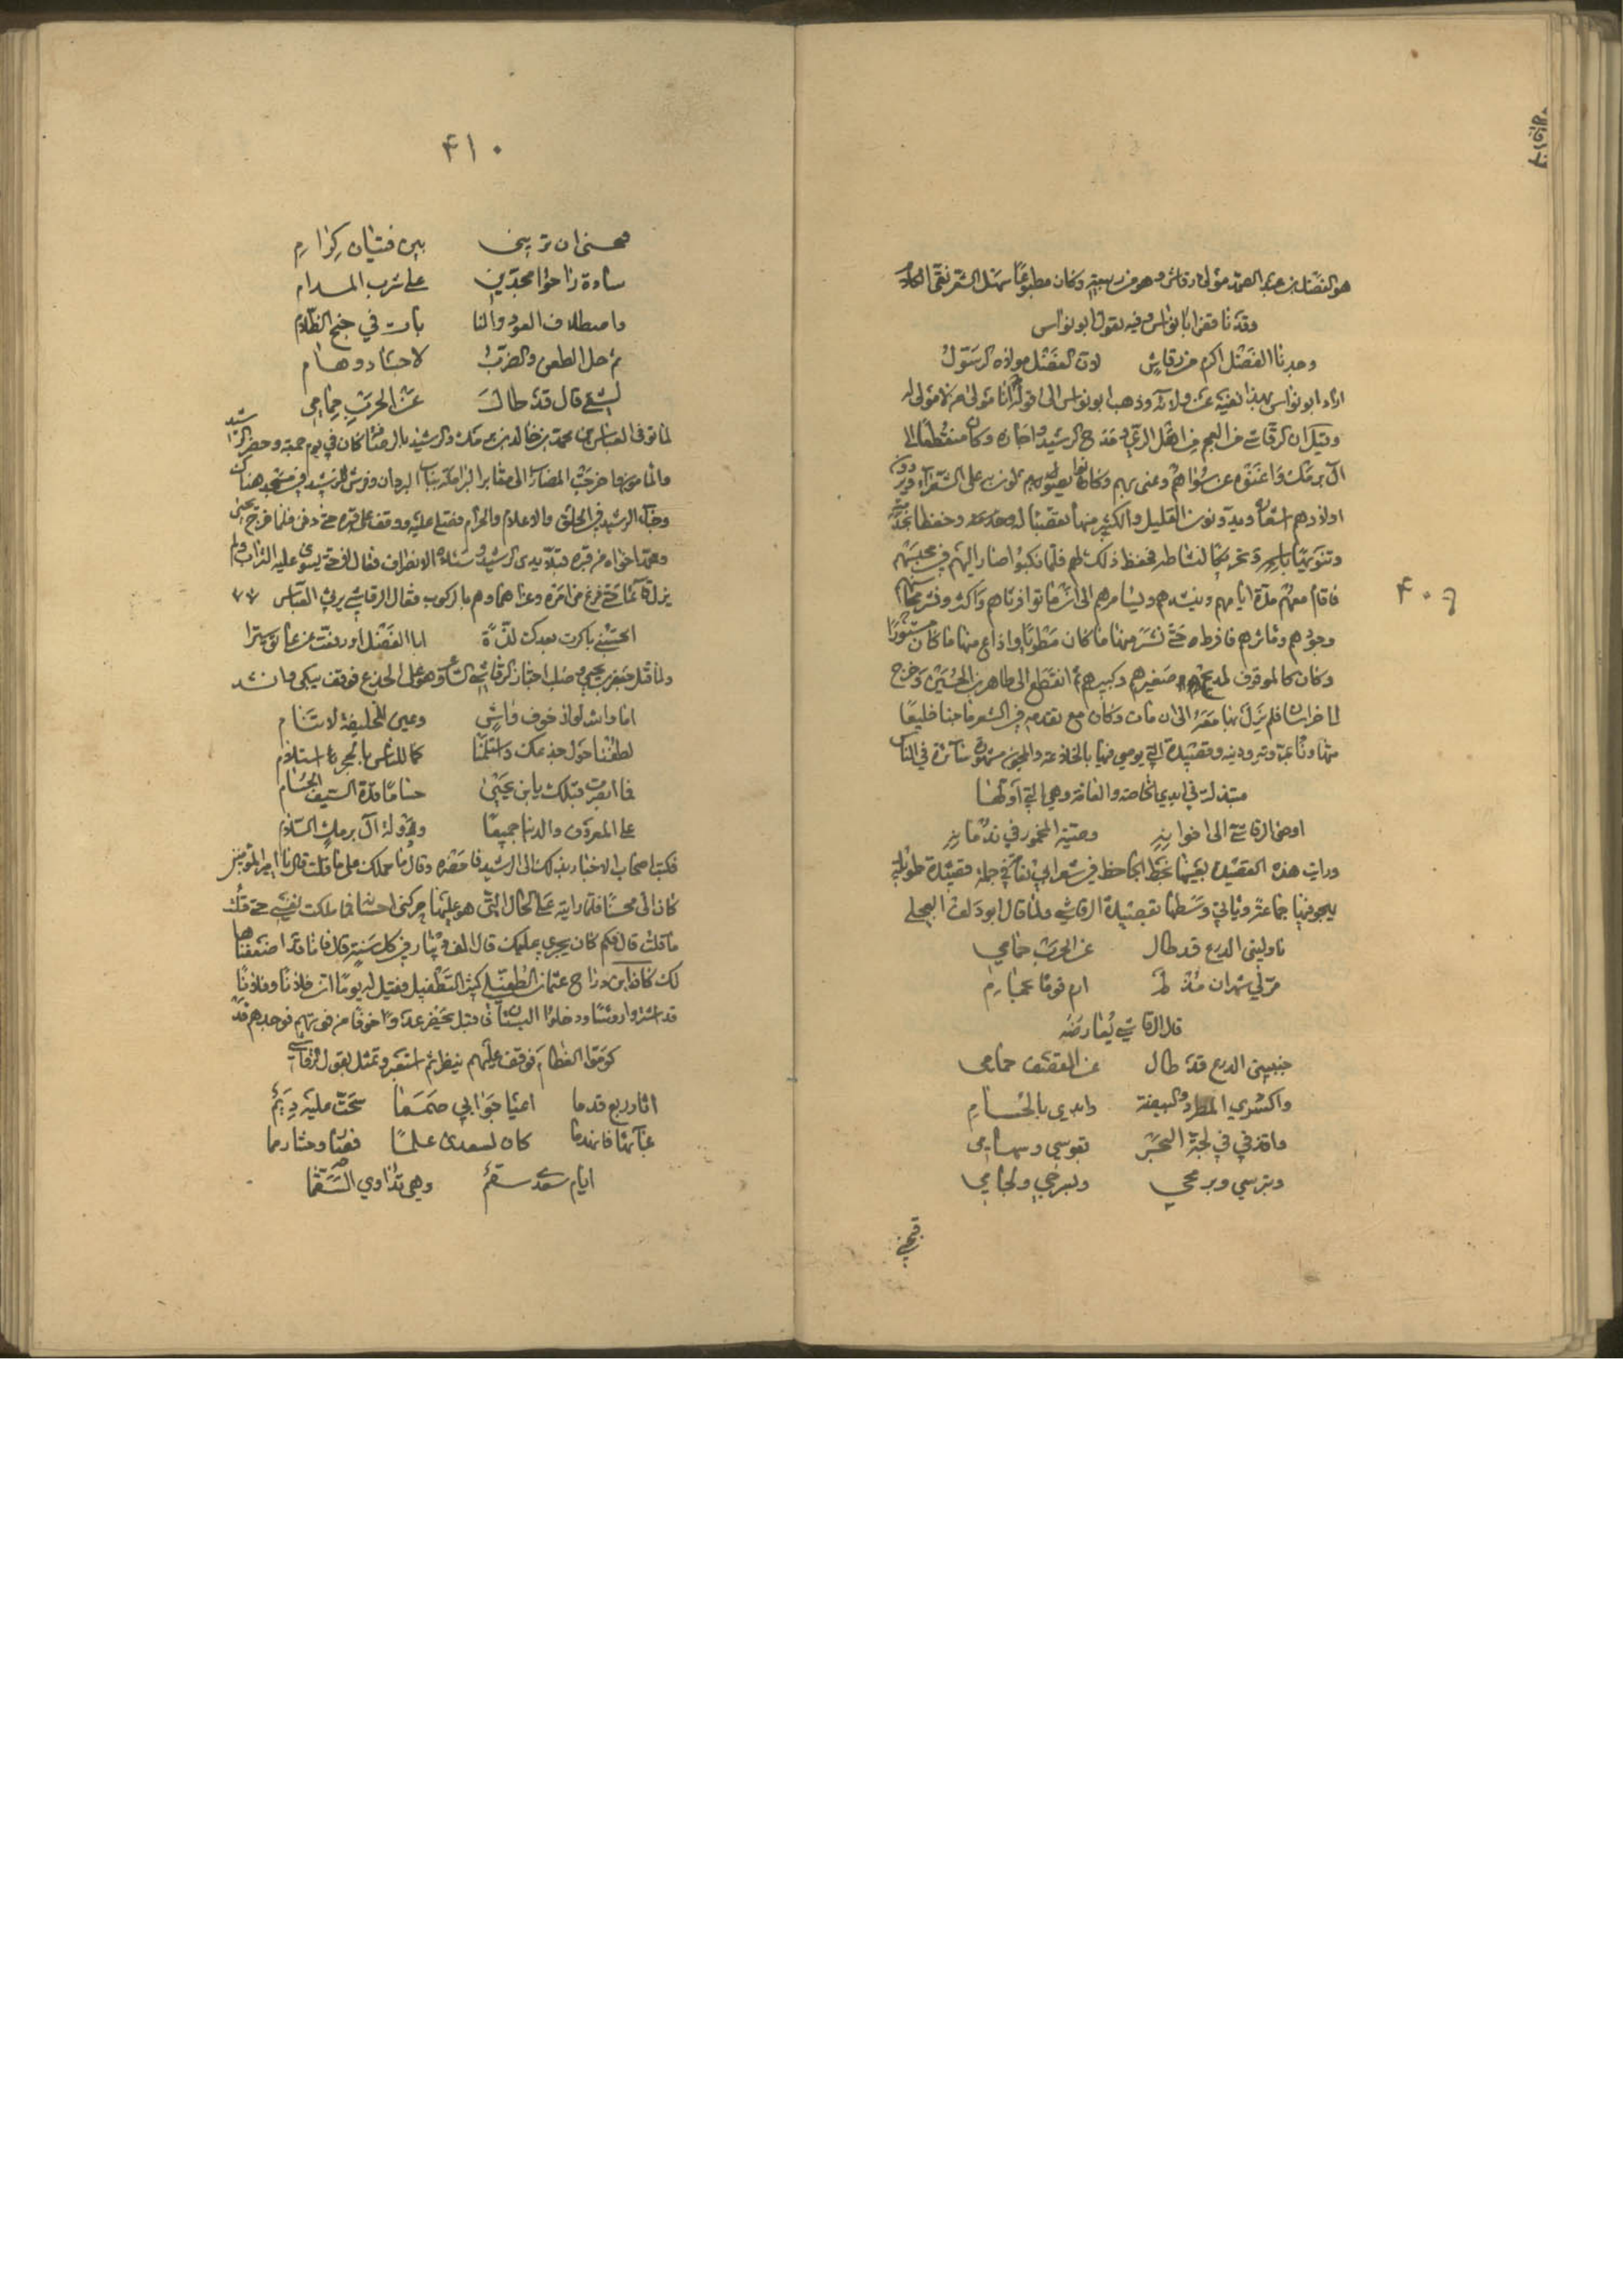 هو الفضل بن عبد الصمد مولى رقاش وهو من ربيعة وكان مطبوعا سهل الشعر نقي الكلام
وقد ناقض ابا نواس وفيه يقول ابو نواس
وجدنا الفضل اكرم من رقاش لان الفضل مولاه الرسول
اراد ابو نواس بهذا نفيه عن ولائه وذهب ابو نواس الى قوله انا مولى من لا مولى له
وقيل ان الرقاشي من العجم من اهل الري ومدح الرشيد واجازه وكان منقطعا الى
آل برمك واغنوه عن سواهم وعني بهم وكانوا يصولون به على الشعراء ويروون
اولادهم اشعاره ويدونون القليل والكثير منها تعصبا له وحفظا لخدمته
وتنويها باسمه وتحريكا لنشاطه فحفظ ذلك لهم فلما نكبوا صار اليهم في محبسهم
فاقام معهم مدة ايامهم ينشدهم ويسامرهم الى ان ماتوا فرثاهم واكثر ونشر محاسن
وجودهم ومآثرهم فافرط حتى نشر منها ما كان مطويا واذاع منها ما كان مستورا
وكان كالموقوف لمديح صغيرهم وكبيرهم ثم انقطع الى طاهر بن الحسين وخرج
لما خراسان فلم يزل بها معه الى ان مات وكان مع تقدمه في الشعر ماجنا خليعا
متهاونا بمروته ودينه وقصيدته التي يوصي فيها بالخلاعة والمجون مشهورة سائرة في الناس
مبتذلة في ايدي الخاصة والعامة وهي التي اولها
اوصى الرقاشي الى اخوانه وصية المحمود في ندمانه
ورايت هذه القصيدة بعينها بخط الجاحظ في شعر ابي نفاثة في جملة قصيدة طويلة
يهجو فيها جماعة ويأتي وسطها بقصيدة الرقاشي ولما قال ابو دلف العجلي
ناوليني الدرع قد طال عن الحرب جمامي
مر لي شهران مذ لم ارم قوما بسهامي
قال الرقاشي يعارضه
جنبيني الدرع قد طال عن القصف جمامي
واكسري المطرد والبيضة وابدي بالحسام
واقذفي في لجة البحر بقوسي وسهامي
وبترسي وبرمحي وبسرجي ولجامي
فبحسبي
٤٠٩
٤١٠
فبحسبي ان تريني بين فتيان كرام
سادة راحوا مجدين على شرب المدام
واصطفاق العود والنا يات في جنح الظلام
ثم خل الطعن والضرب لاجساد وهام
لشقي قال قد طال عن الحرب جمامي
لما توفي العباس بن محمد بن خالد بن برمك والرشيد بالرصافة كان في يوم جمعة وحضر الرشيد
والمأمون فاخرجت المضارب الى مقابر البرامكة بباب البردان وفرش للرشيد في مسجد هناك
وجاء الرشيد في الخلق والاعلام والحراب فصلى عليه ووقف على قبره حتى دفن فلما خرج يحيى
ومحمد اخواه من قبره قبلا يدي الرشيد وسألاه الانصراف فقال لا حتى يسوى عليه التراب ولم
يزل قائما حتى فرغ من امره وعزاهما وامرهم بالركوب فقال الرقاشي يرثي العباس
اتحسبني باكرت بعدك لذة ابا الفضل او رفعت عن عاتق سترا
ولما قتل جعفر بن يحيى وصلب اجتاز الرقاشي الشاعر وهو على الجذع فوقف يبكي وانشد
اما والله لولا خوف واش وعين للخليفة لا تنام
لطفنا حول جذعك واستلمنا كما للناس بالحجر استلام
فما ابصرت قبلك يا ابن يحيى حساما قده السيف الحسام
على المعروف والدنيا جميعا ودولة آل برمك السلام
فكتب اصحاب الاخبار بذلك الى الرشيد فاحضره وقال ما حملك على ما قلت قال يا امير المؤمنين
كان الي محسنا فلما رايته على الحال التي هو عليها حركني احسانه فما ملكت نفسي حتى قلت
ما قلت قال فكم كان يجري عليك قال الف دينار في كل سنة قال فانا قد اضعفناها
لك كان ابن دراج عثمان الطفيلي كثير التطفيل فقيل له يوما ان فلانا وفلانا
قد اشتروا رؤسا ودخلوا البستان فاقبل يحضر عدوا خوفا من فوتهم فوجدهم قد
كوموا العظام فوقف عليهم ينظر ثم استعبر وتمثل بقول الرقاشي
آثار ربع قدما اعيا جوابي صمما سحت عليه ديم
بمائها فانهدما كان لسعدى علما فصار وحشا رمما
ايام سعدى سقم وهي تداوي السقما